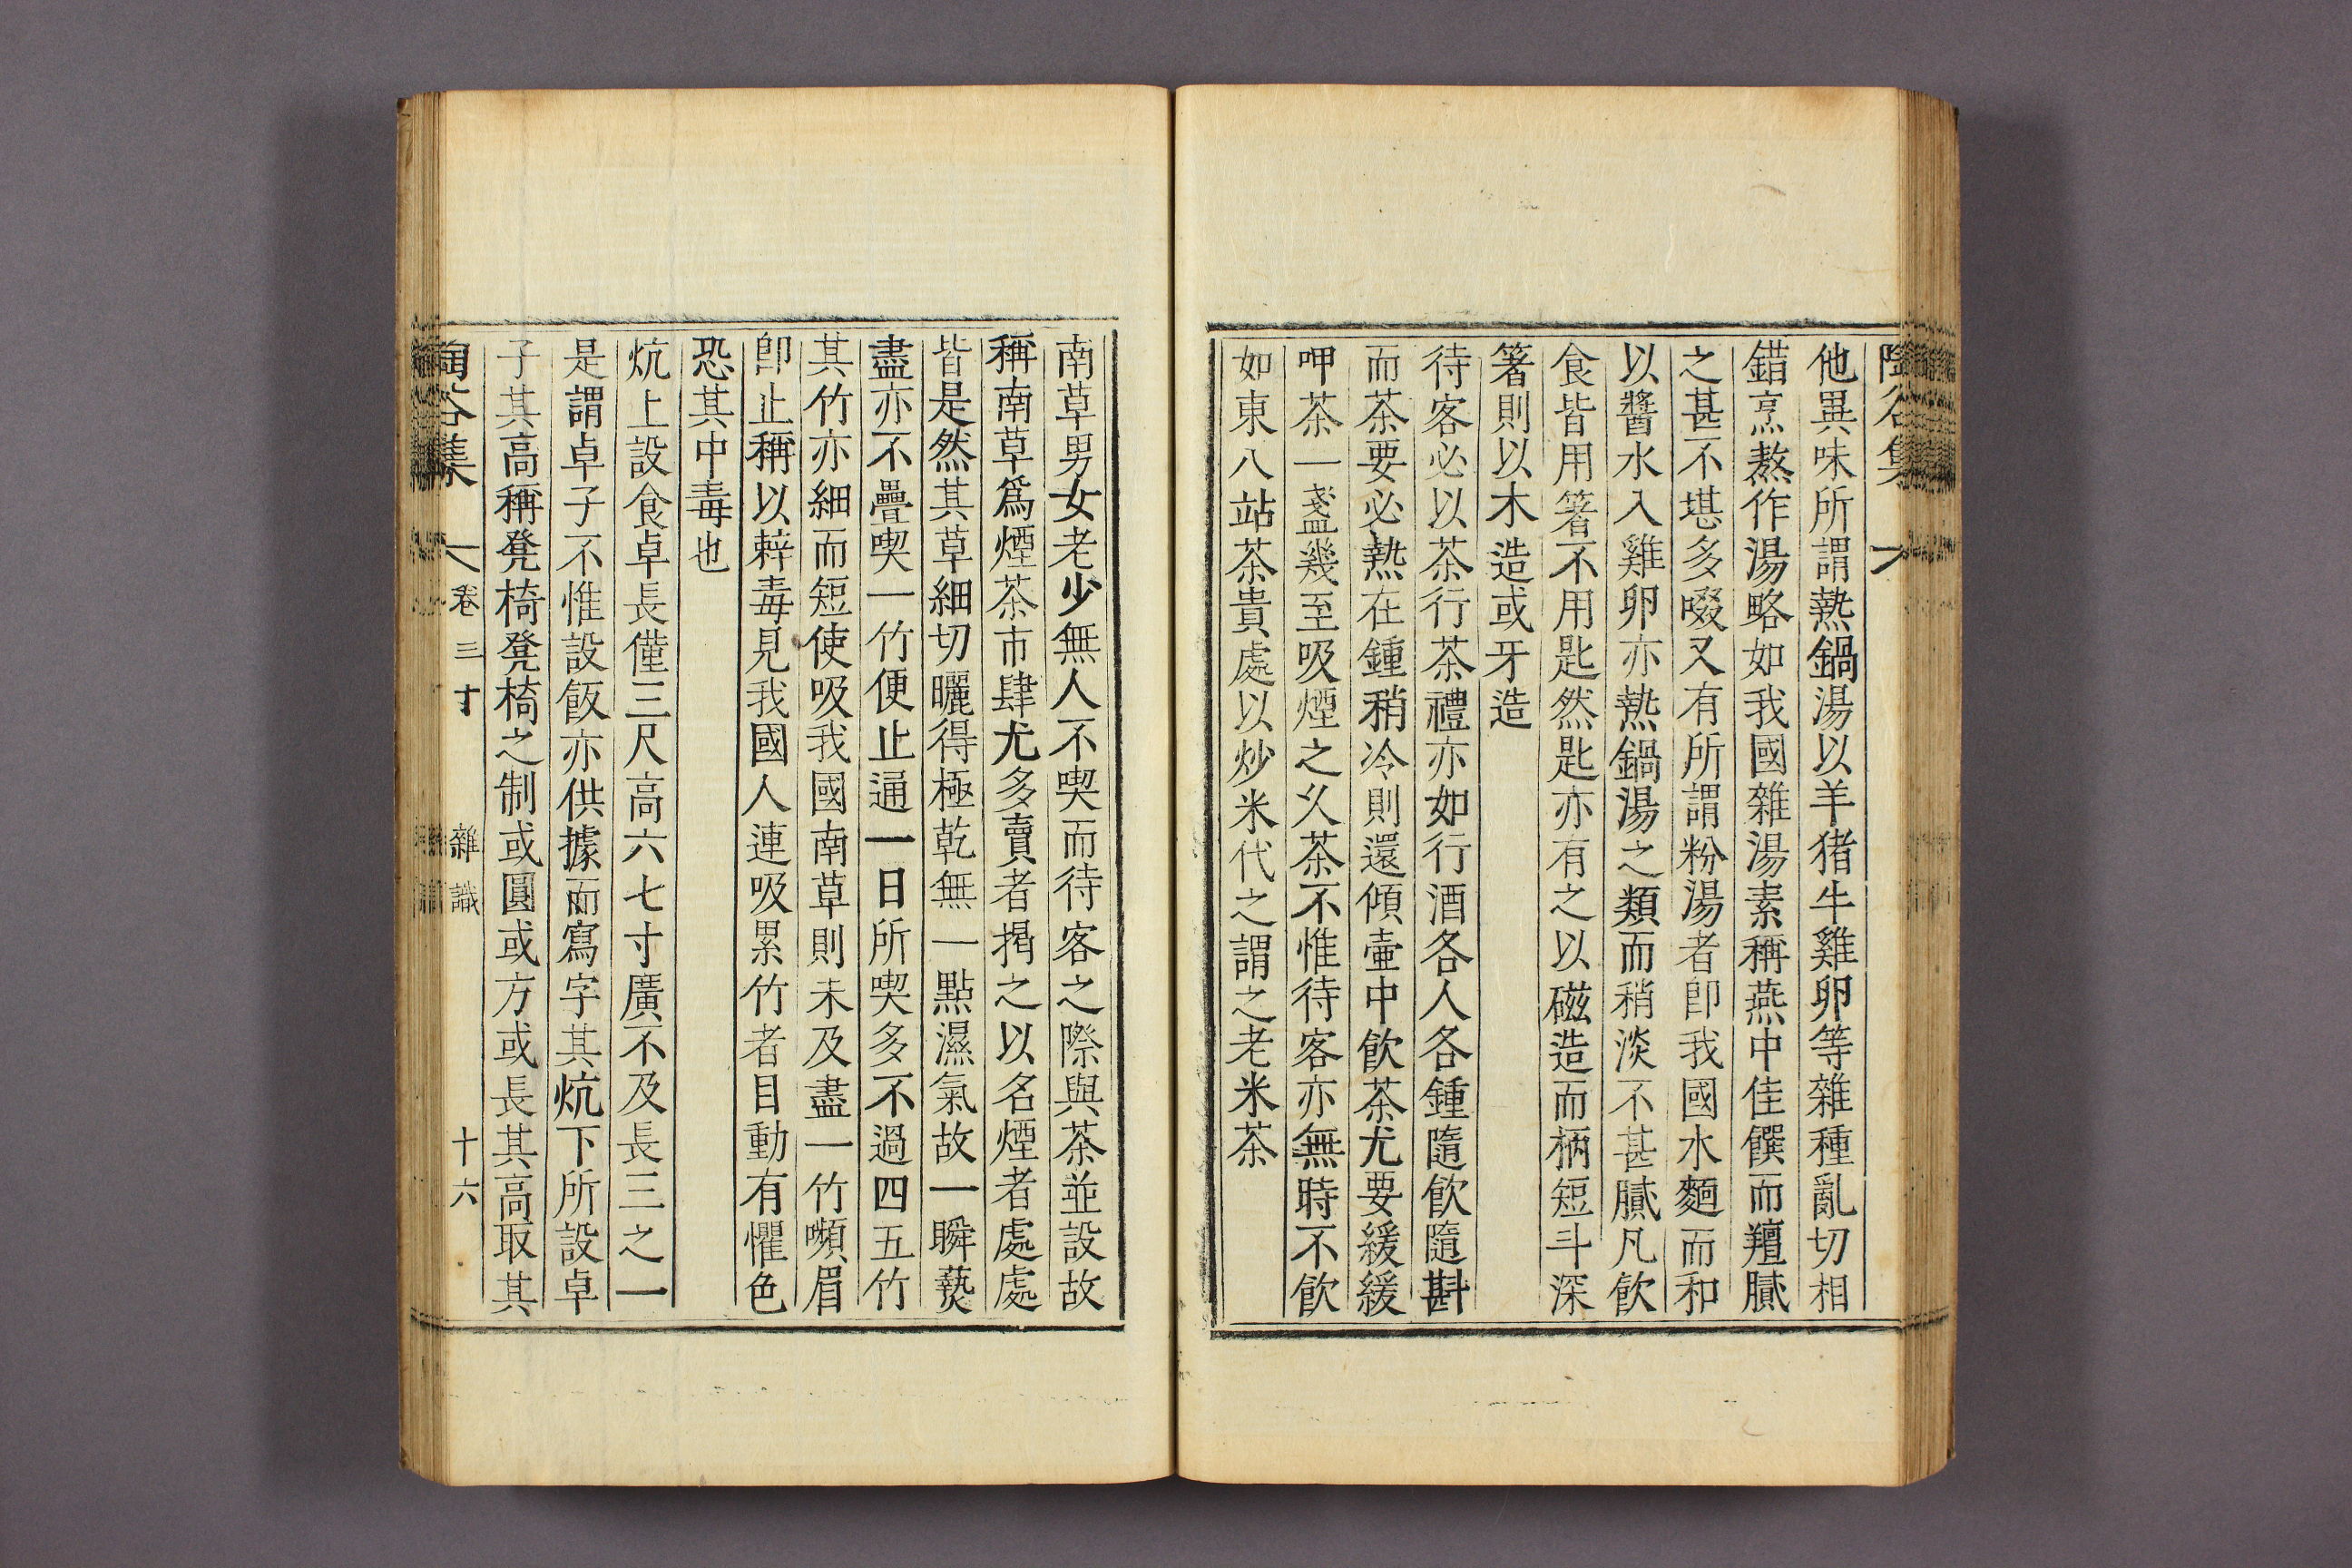 他異味所謂熱鍋湯以羊猪牛雞卵等雜種亂切相
錯烹熬作湯略如我國雜湯素稱燕中佳饌而羶膩
之甚不堪多啜又有所謂粉湯者卽我國水麵而和
以醬水入雞卵亦熱鍋湯之類而稍淡不甚膩凡飮
食皆用箸不用匙然匙亦有之以磁造而柄短斗深
箸則以木造或牙造
待客必以茶行茶禮亦如行酒各人各鍾隨飮隨斟
而茶要必熱在鍾稍冷則還傾壷中飮茶尤要緩緩
呷茶一盞幾至吸煙之久茶不惟待客亦無時不飮
如東八站茶貴處以炒米代之謂之老米茶
南草男女老少無人不喫而待客之際與茶並設故
稱南草爲煙茶市肆尤多賣者揭之以名煙者處處
皆是然其草細切曬得極乾無一點濕氣故一瞬爇
盡亦不疊喫一竹便止通一日所喫多不過四五竹
其竹亦細而短使吸我國南草則未及盡一竹嚬眉
卽止稱以辢毒見我國人連吸累竹者目動有懼色
恐其中毒也
炕上設食卓長僅三尺高六七寸廣不及長三之一
是謂卓子不惟設飯亦供據而寫字其炕下所設卓
子其高稱凳椅凳椅之制或圓或方或長其高取其
陶谷集 卷三十 雜識 十六